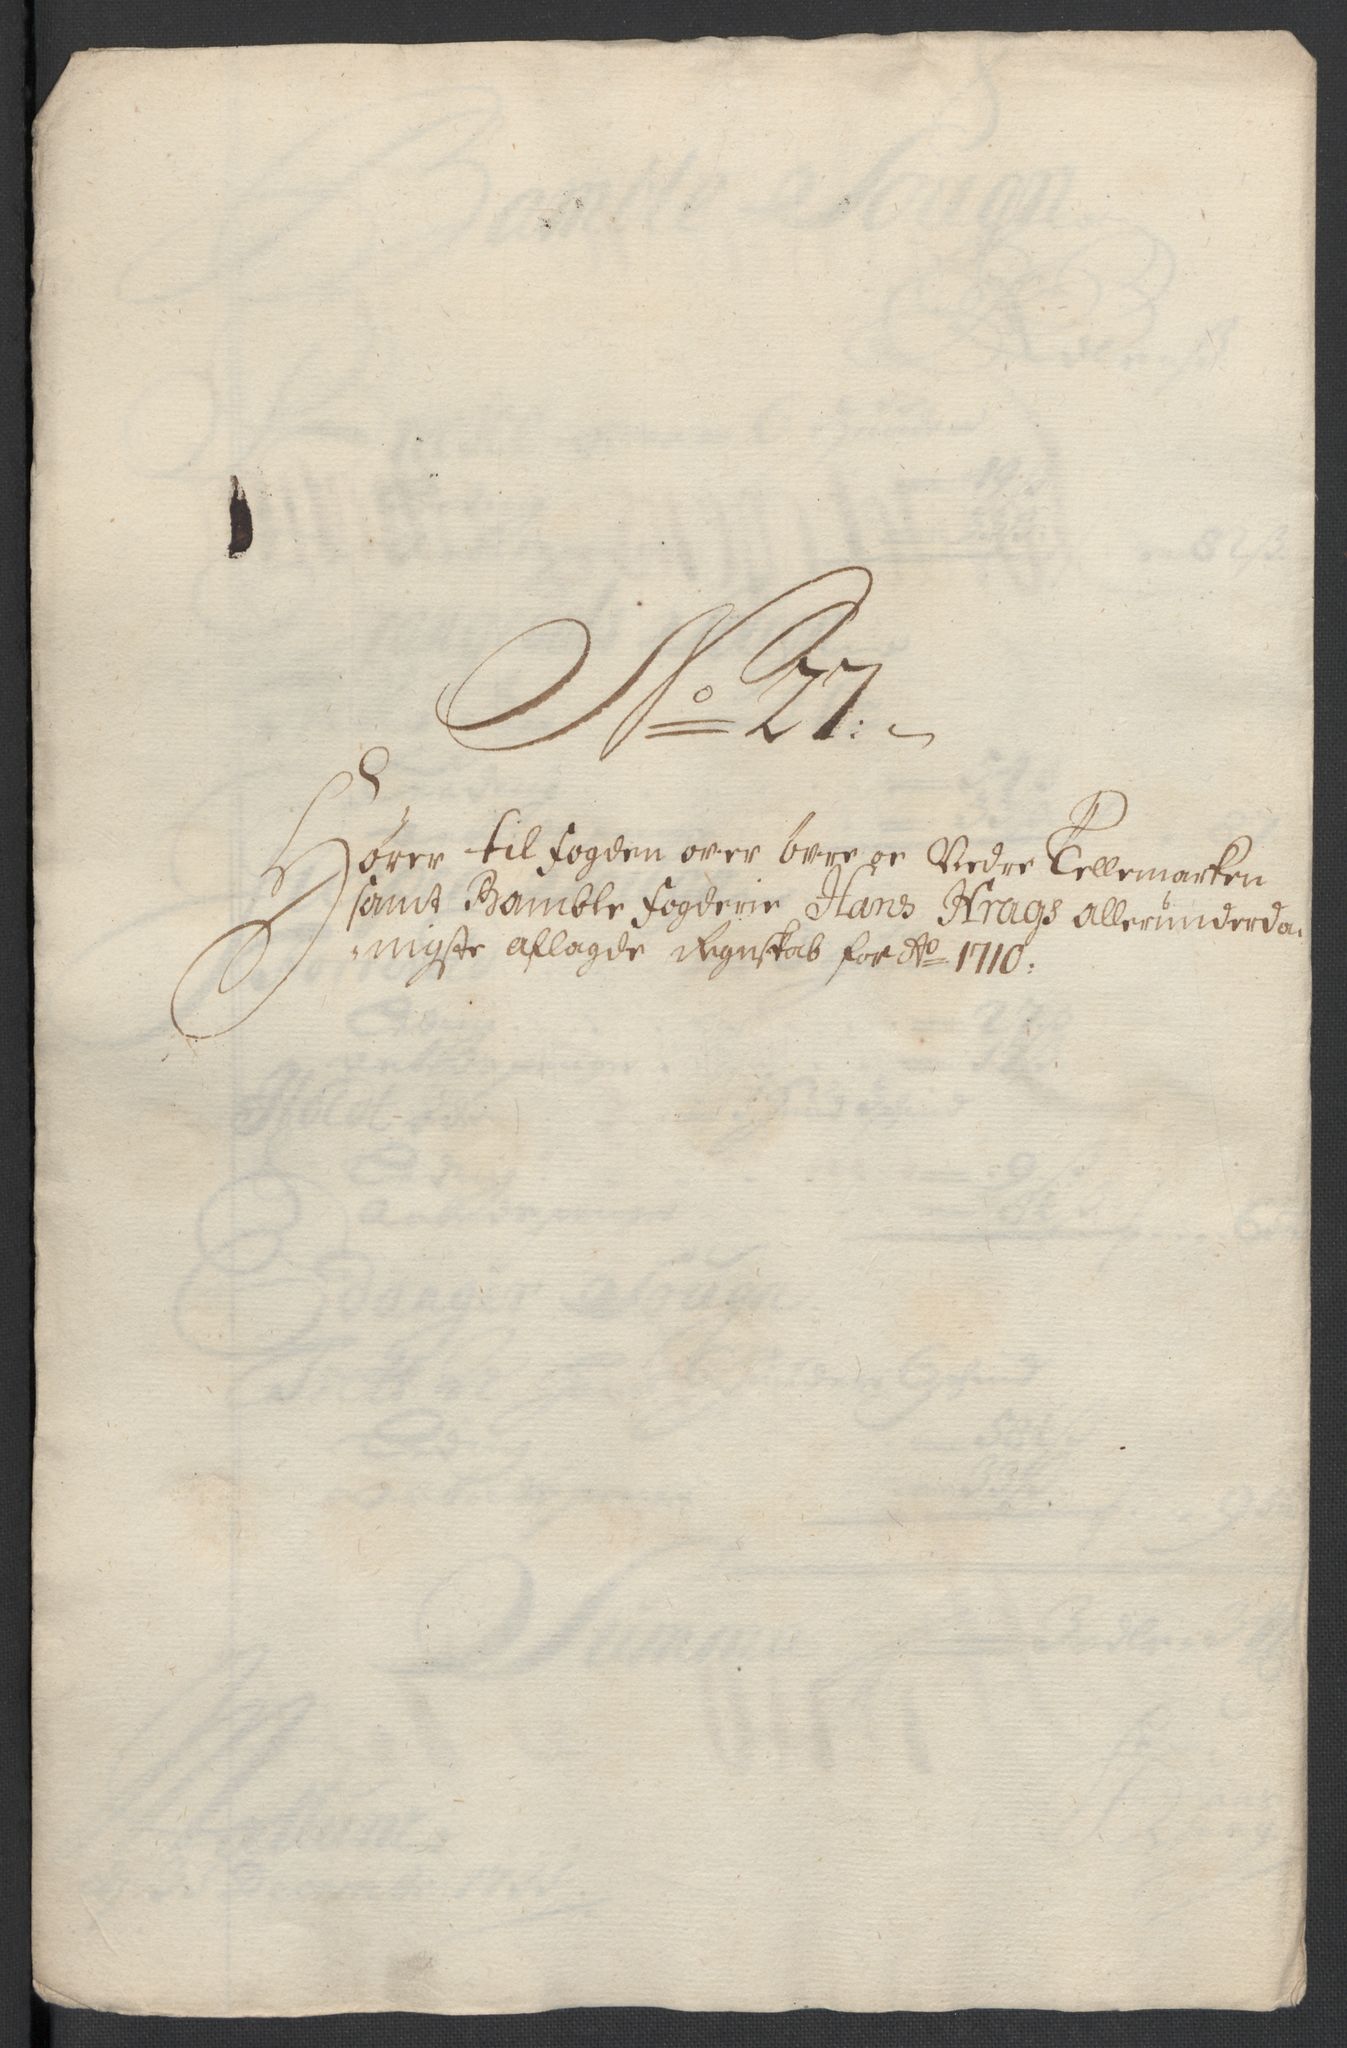 No 27.
Hører til fogden over övre oc Nedre Tellemarken
samt Bamble fogderie Hans Krags alleründerda-
nigste aflagde Regnskab for Ao 1710: